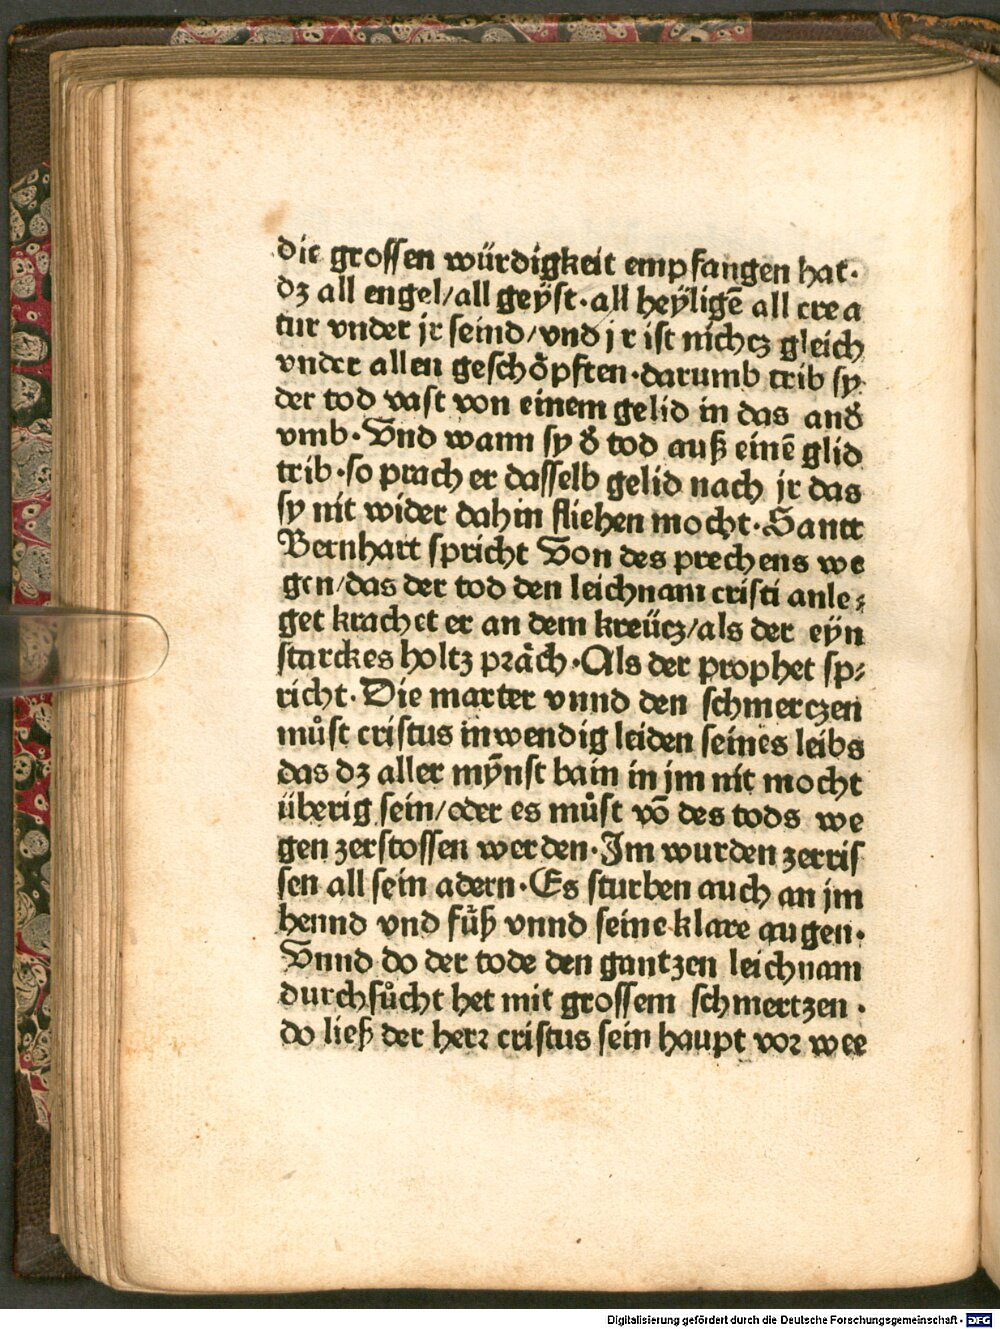 die grossen würdigkeit empfangen hat·
dz all engel/all geÿst·all heÿligē all crea
tur vnder jr seind/vnd jr ist nichcz gleich
vnder allen geschöpften·darumb trib sy
der tod vast von einem gelid in das and̄
vmb·Vnd wann sy d̄ tod auß einē glid
trib·so prach er dasselb gelid nach jr das
sy nit wider dahin fliehen mocht·Sannt
Bernhart spricht Von des prechens we
gen/das der tod den leichnam cristi anle⸗
get krachet er an dem kreücz/als der eÿn
starckes holtz präch·Als der prophet sp⸗
richt·Die marter vnnd den schmerczen
můst cristus inwendig leiden seines leibs
das dz aller mÿnst bain in jm nit mocht
überig sein/oder es můst vō des tods we
gen zerstossen werden·Im wurden zerris
sen all sein adern·Es sturben auch an jm
hennd vnd fůß vnnd seine klare augen·
Vnnd do der tode den gantzen leichnam
durchsůcht het mit grossem schmertzen·
do ließ der herr cristus sein haupt vor wee
Digitalisierung gefördert durch die Deutsche Forschungsgemeinschaft - DFG